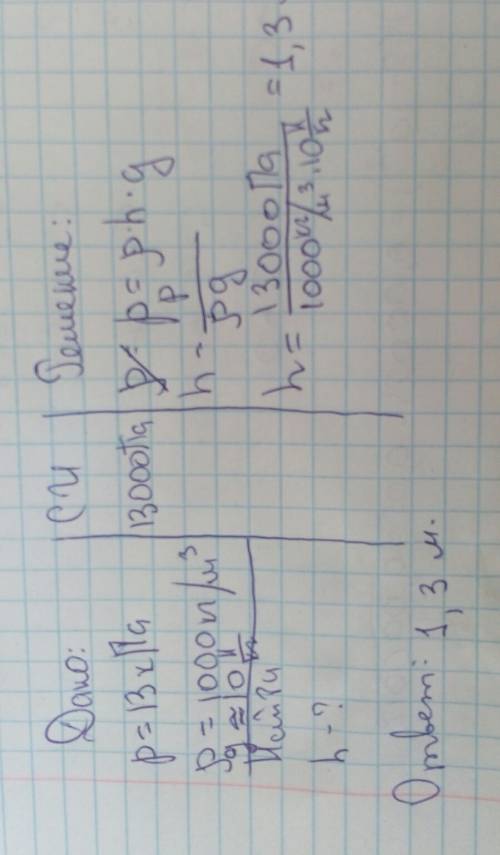 Дано:
p = 13 кПа
ρ = 1000 кг/м³
g ≈ 10 Н/кг
Найти
h - ?
СИ
13000 Па
Решение:
p = ρ·h·g
h = p/ρg
h = 13000 Па / 1000 кг/м³ · 10 Н/кг = 1,3
Ответ: 1,3 м.